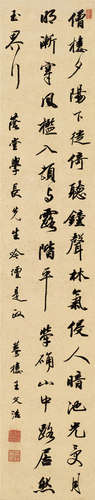 僧樓夕陽下徙倚聽鐘聲林氣侵人暗池光受月
明漸穿風檻入頓與露階平犖确山中路居然
玉界行 蔭堂學長先生吟壇是政 夢樓王文治